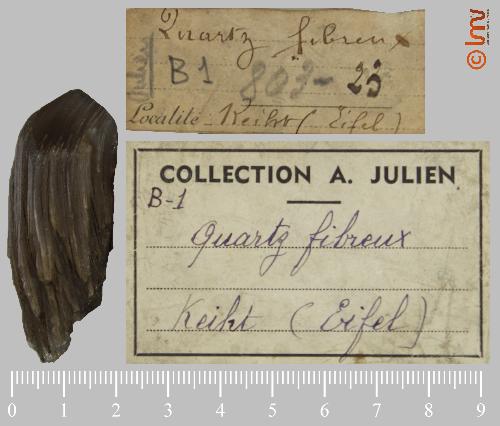 © lmv
Quartz fibreux
B1 803-23
Localité - Keiht (Eifel)
COLLECTION A. JULIEN
B-1
Quartz fibreux
Keiht (Eifel)
0 1 2 3 4 5 6 7 8 9